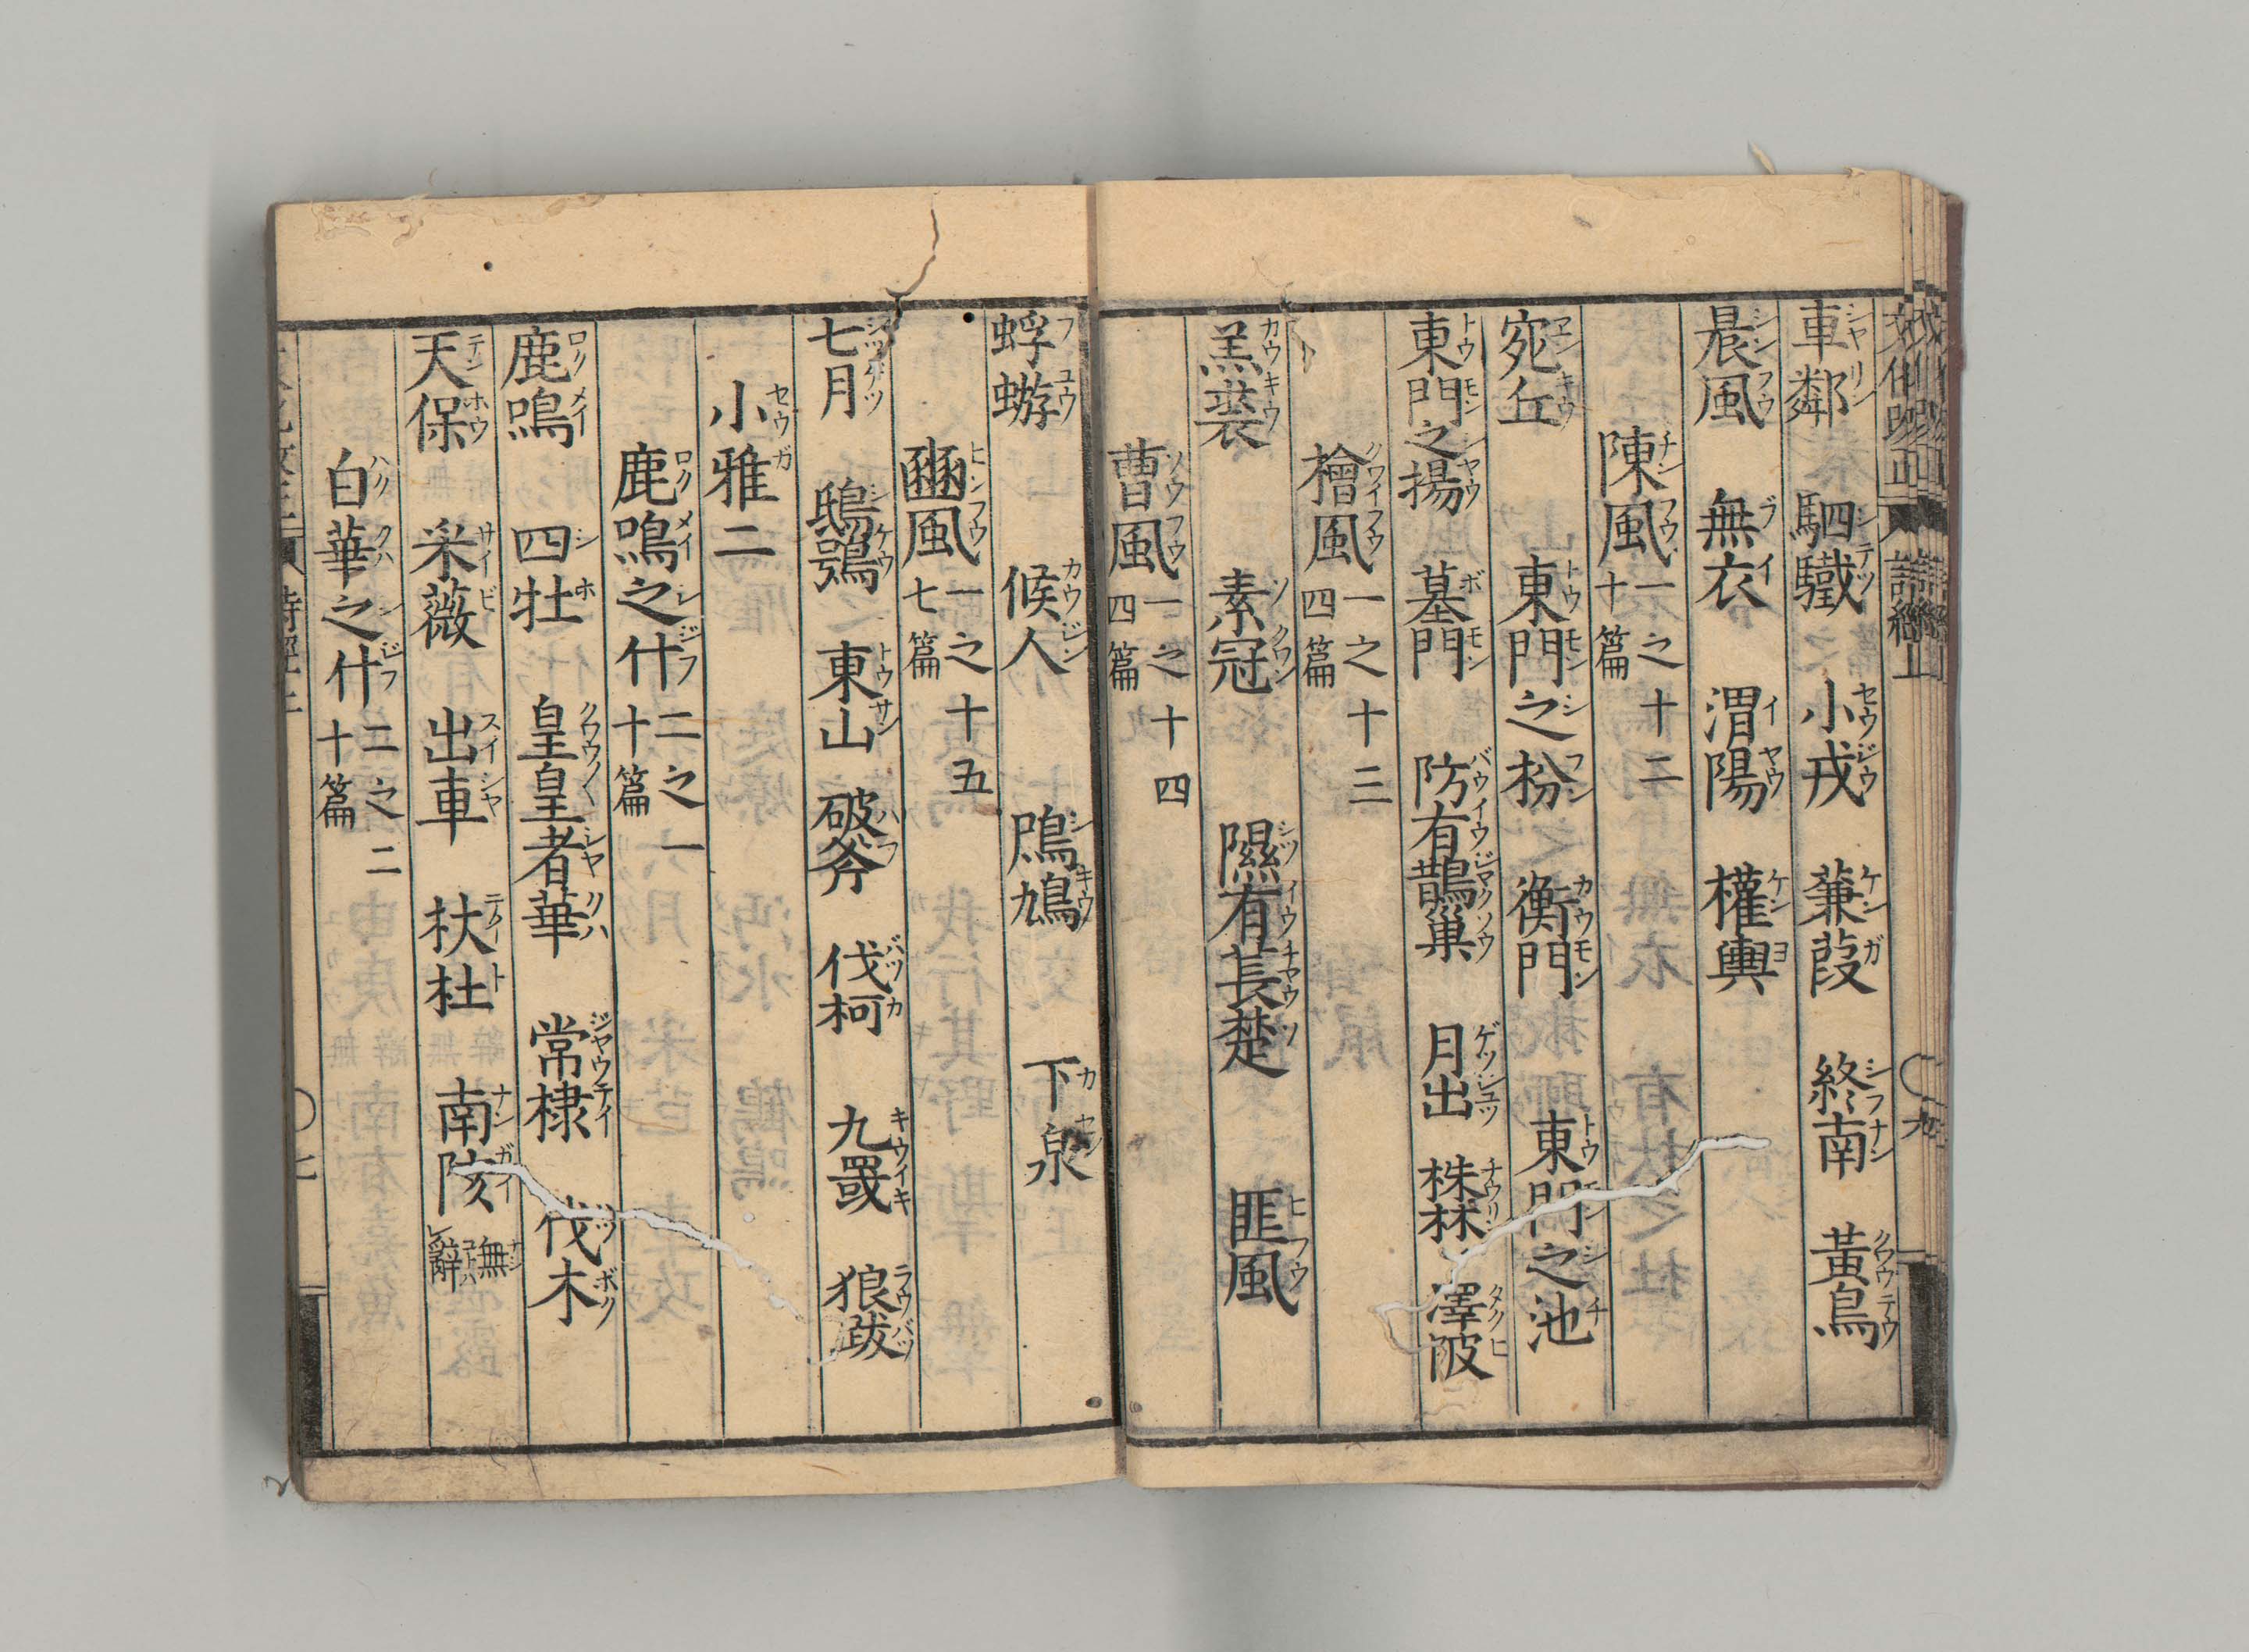 車鄰 駟驖 小戎 蒹葭 終南 黃鳥
晨風 無衣 渭陽 權輿
陳風一之十二十篇
宛丘 東門之枌 衡門 東門之池
東門之揚 墓門 防有鵲巢 月出 株林 澤陂
檜風一之十三四篇
羔裘 素冠 隰有萇楚 匪風
曹風一之十四四篇
蜉蝣 候人 鳲鳩 下泉
豳風一之十五七篇
七月 鴟鴞 東山 破斧 伐柯 九罭 狼跋
小雅二
鹿鳴之什二之一十篇
鹿鳴 四牡 皇皇者華 常棣 伐木
天保 采薇 出車 杕杜 南陔無辭
白華之什二之二十篇